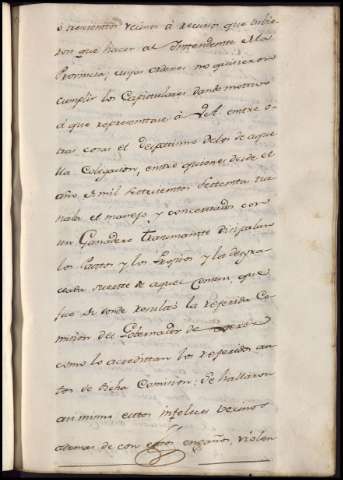 o trecientos vecinos à recurso que tubie
ron que hacer al Intendente de la
Provincia, cuias ordenes no quisieron
cumplir los Capitulares dando motivo
à que representase à Vel. entre o
tras cosas el despotismo de los de aque
lla Colegacion, entre quienes desde el
año, de mil setecientos settenta
el manejo, y concertados con
un Ganadero Trasumante disipaban
los Pastos y los Propios y la desgra
ciada suerte de aquel Comun, que
fue de donde resultò la referida Co
mision del Gobernador de
como lo acreditan los referidos au
tos de dicha Comision; Se hallaron
asi mismo estos infelices vecinos
ademas de con estos engaños, violen